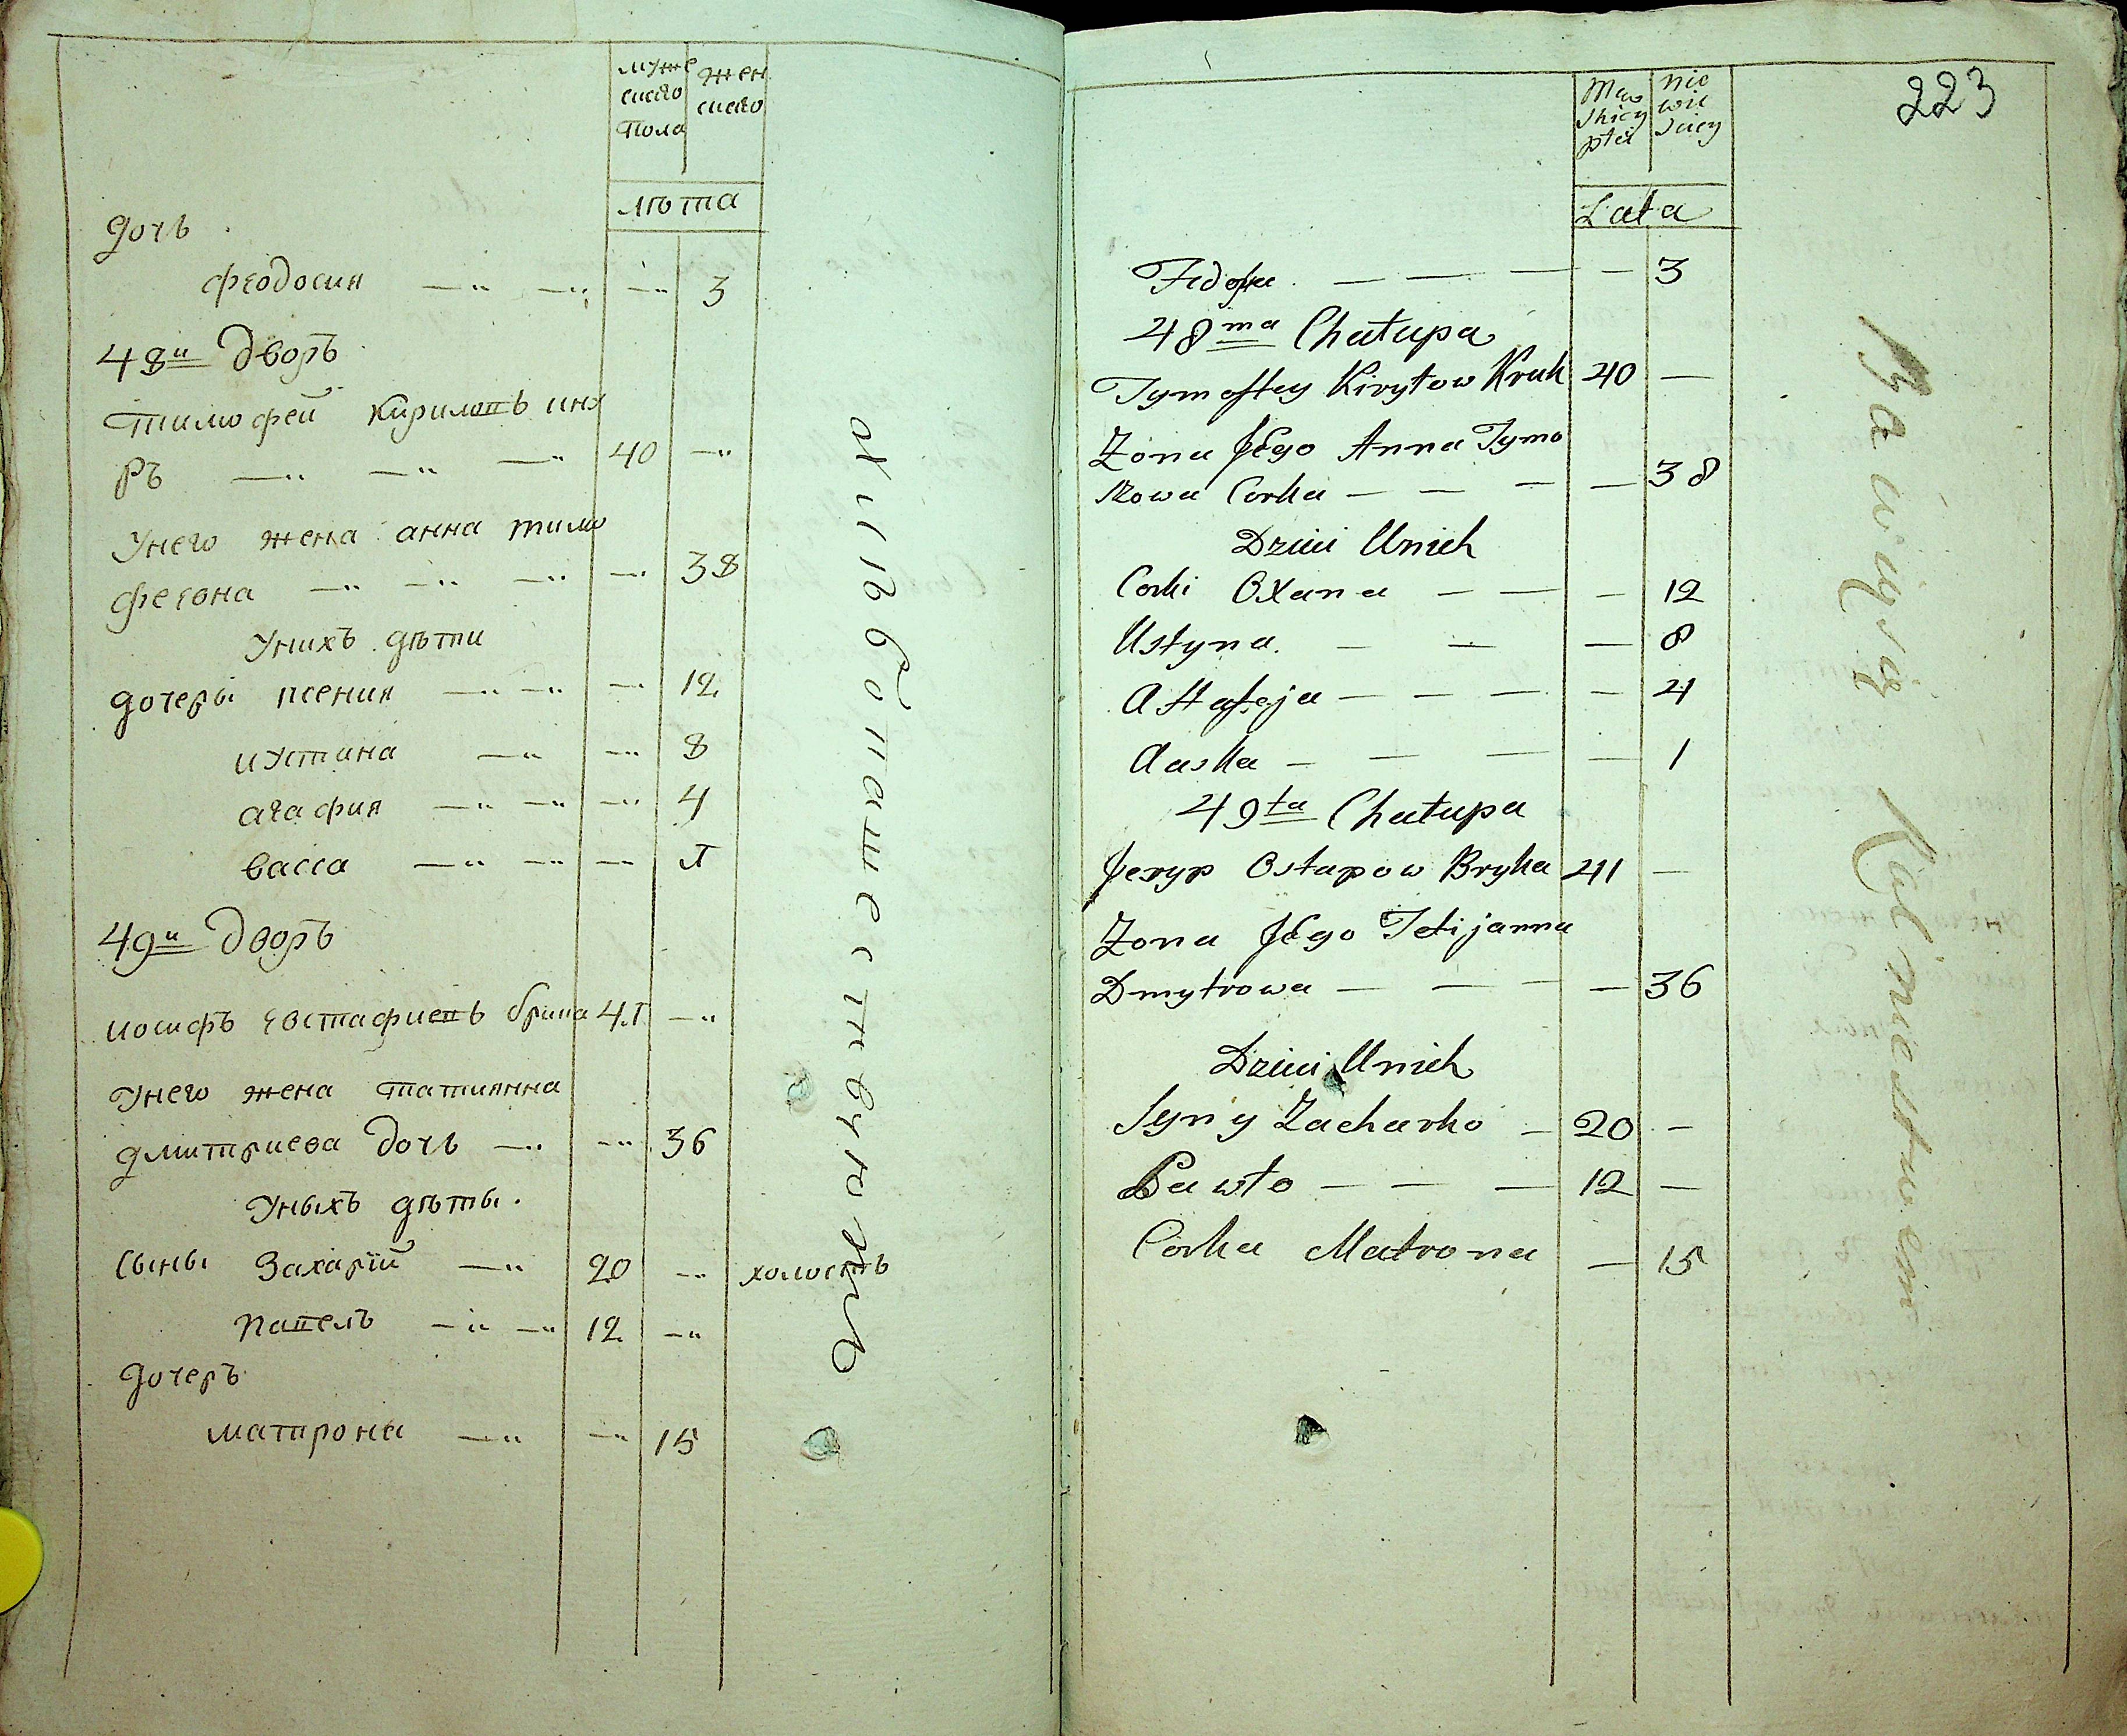 муже
скаго
пола
жен
скаго
лѣта
дочь
феодосия —" —" —" 3
48й дворъ
тимофей кириловъ
ръ —" —" —" 40 —"
Унего жена анна тимо
феевна —" —" —" —" 38
Унихъ дѣти
дочеры ксения —" —" —" 12
иустина —" —" 8
агафия —" —" —" 4
васса —" —" —" 1
49й дворъ
иосифъ евстафиевъ брика 41 —"
Унего жена татиянна
дмитриева дочь —" —" 36
Уныхъ дѣты.
сыны Захарїй —" 20 —" холостъ
павелъ —" —" 12 —"
дочеръ
матроны —" —" 15
жительствуютъ
223
Męs
skiey
płci
nie
wie
sciey
Lata
Fedoska — — — — 3
48ma Chałupa
Tymoftey Kiryłow Kruk 40 —
Zona Jego Anna Tymo
szowa Corka — — — — 38
Dzieci Unich
Corki Oxana — — — 12
Ustyna. — — — 8
Ahafeja — — — — 4
Waska — — — — 1
49ta Chałupa
Jezyp Ostapow Bryka 41 —
Zona Jego Tetijanna
Dmytrowa — — — — 36
Dzieci Unich
Syny Zacharko — 20 —
Pawło — — — 12 —
Corka Matrona — 15
Bawią